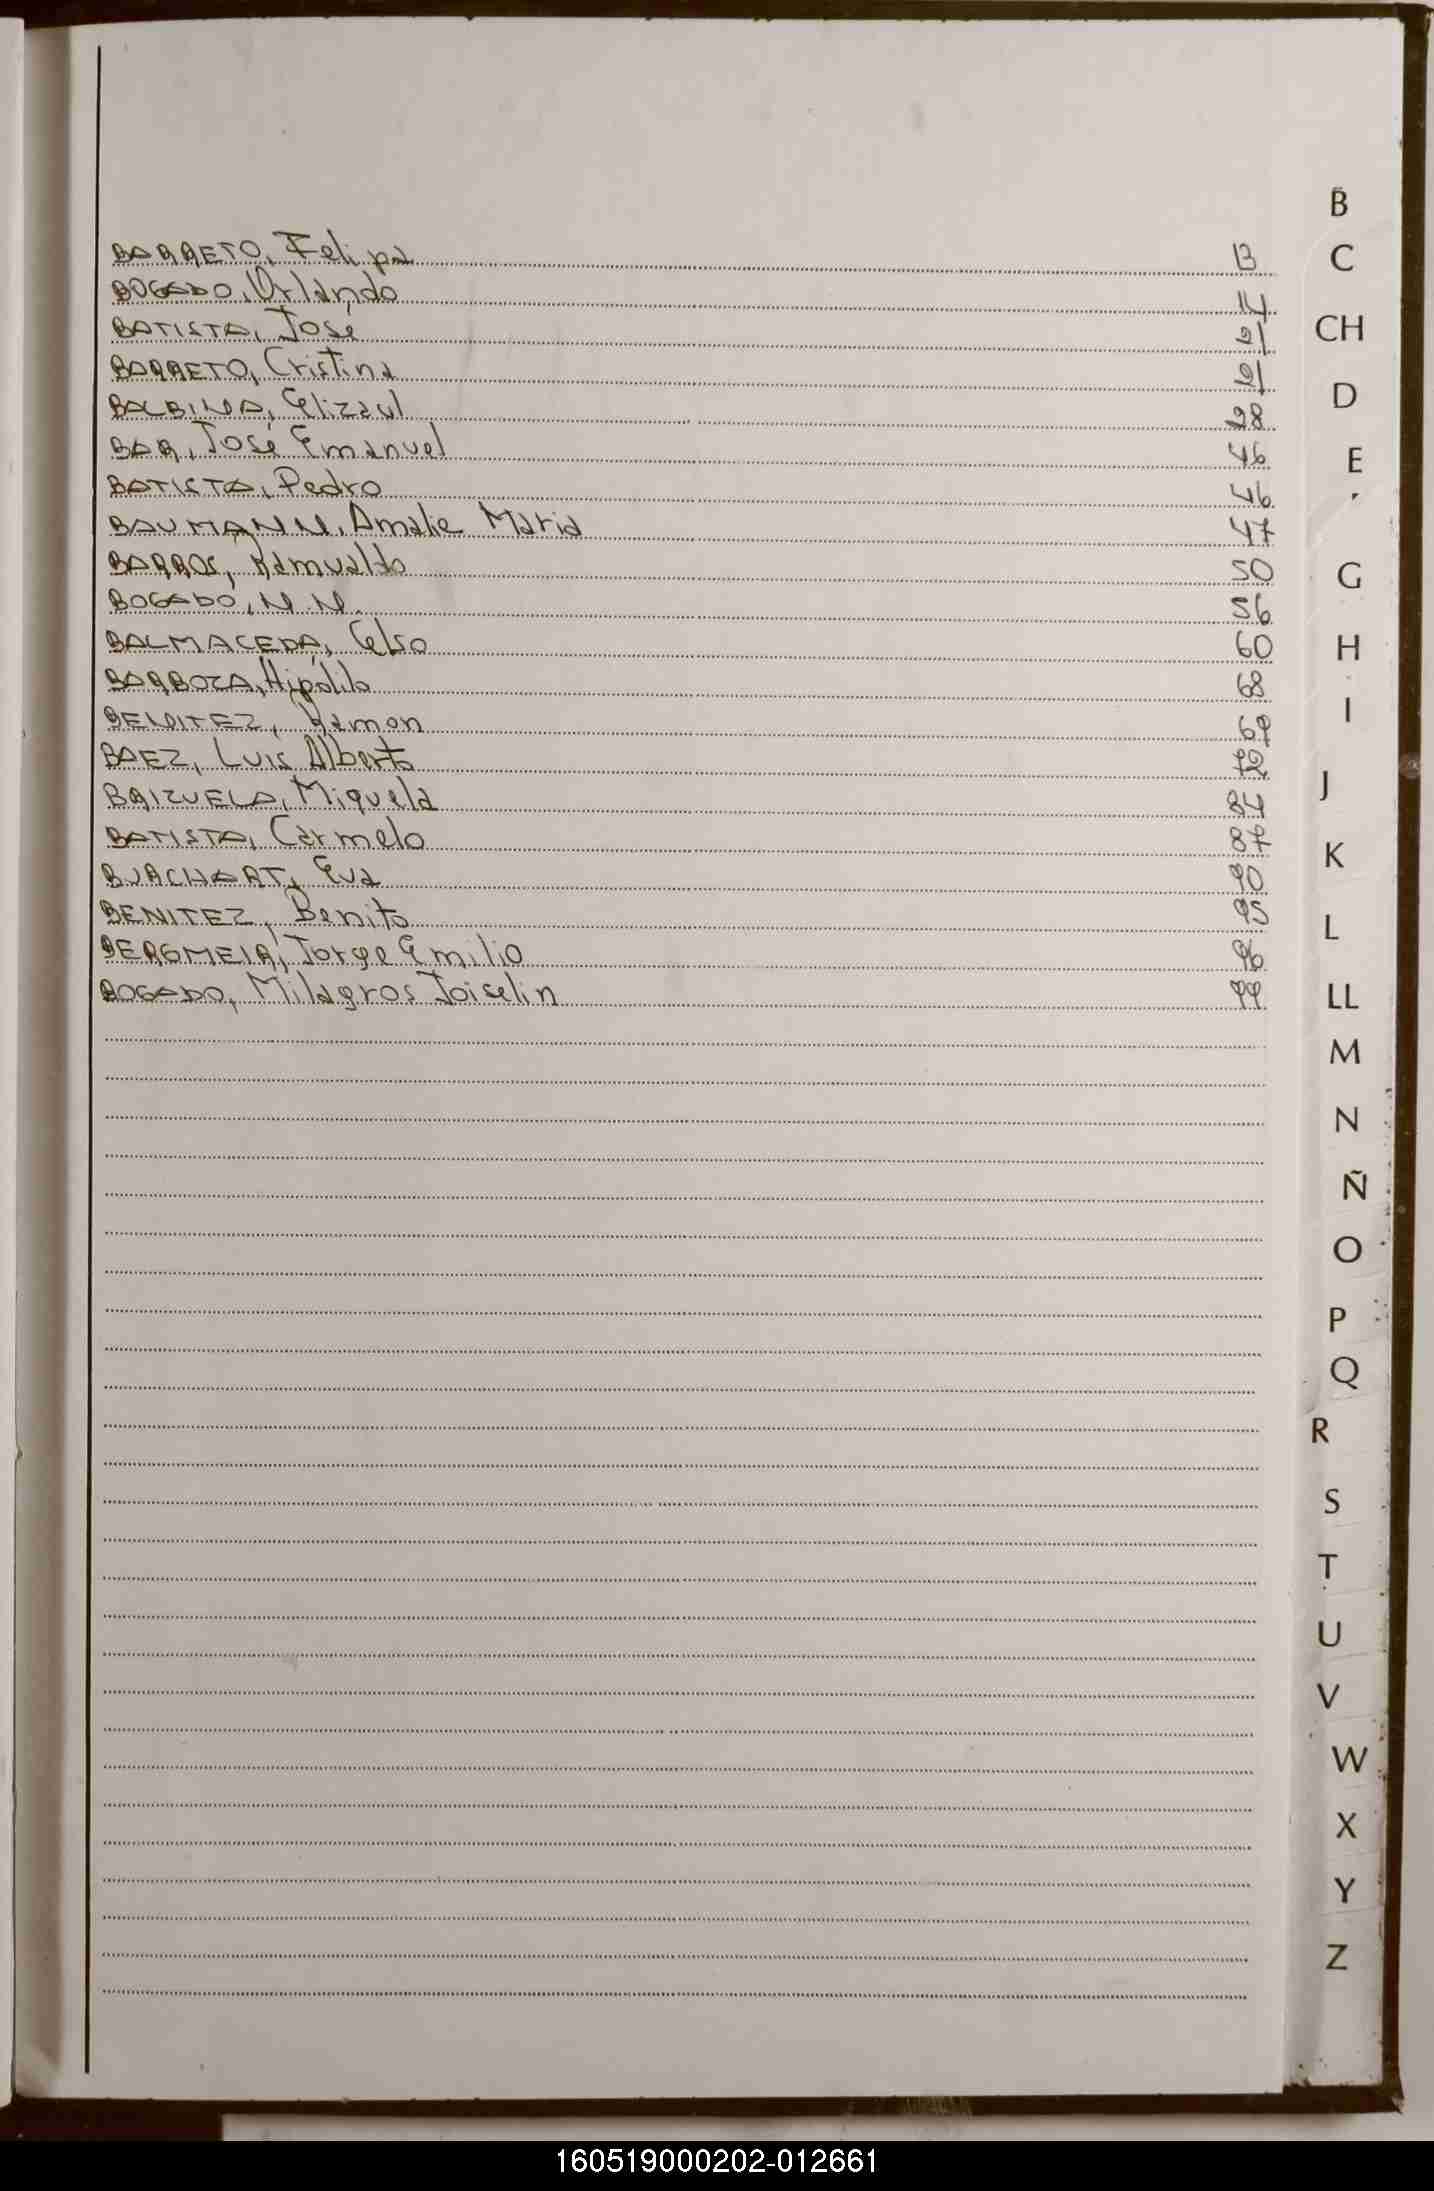 BARRETO, Felipa 13
BOGADO, Orlando 14
BATISTA, José 21
BARRETO, Cristina 21
BALBINA, Elizaul 28
BAR, José Emanuel 46
BATISTA, Pedro 46
BAUMANN, Amalie Maria 47
BARROS, Ramualdo 50
BOGADO, N.N. 56
BALMACEDA, Celso 60
BARBOZA, Hipólito 68
BENITEZ, Ramon 69
BAEZ, Luis Alberto 72
BRIZUELA, Miquela 84
BATISTA, Carmelo 87
BURCHART, Eva 90
BENITEZ, Benito 95
BERGMEIR, Jorge Emilio 96
BOGADO, Milagros Joiselin 99
B
C
CH
D
E
G
H
I
J
K
L
LL
M
N
Ñ
O
P
Q
R
S
T
U
V
W
X
Y
Z
160519000202-012661